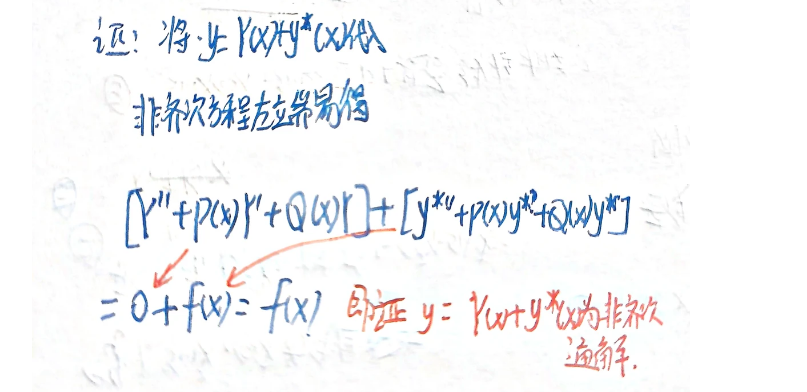 证: 将 y=Y(x)+y*(x)代入
非齐次方程左端易得
[Y''+P(x)Y'+Q(x)Y]+[y*''+P(x)y*'+Q(x)y*]
=0+f(x)=f(x) 即证 y=Y(x)+y*(x)为非齐次
通解.